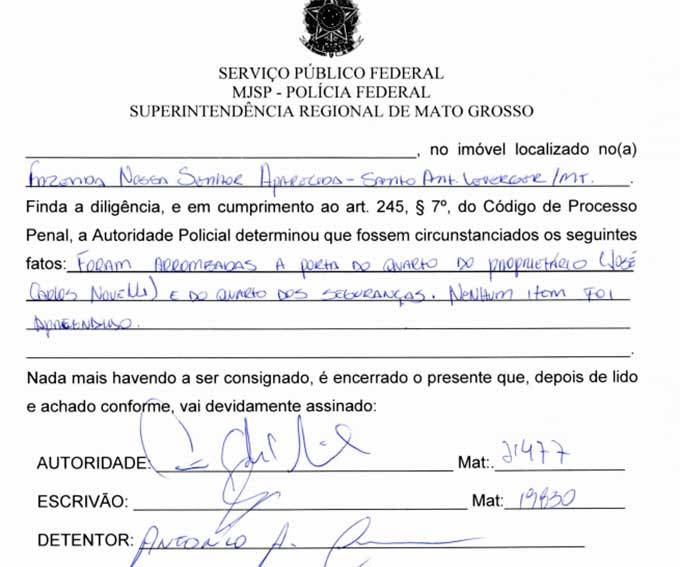 SERVIÇO PÚBLICO FEDERAL
MJSP - POLÍCIA FEDERAL
SUPERINTENDÊNCIA REGIONAL DE MATO GROSSO
, no imóvel localizado no(a)
FAZENDA NOSSA SENHOR APARECIDA - SANTO ANT. LEVERGER/MT.
Finda a diligência, e em cumprimento ao art. 245, § 7º, do Código de Processo
Penal, a Autoridade Policial determinou que fossem circunstanciados os seguintes
fatos: FORAM ARROMBADAS A PORTA DO QUARTO DO PROPRIETÁRIO (JOSÉ
CARLOS NOVELLI) E DO QUARTO DOS SEGURANÇAS. NENHUM ITEM FOI
APREENDIDO.
Nada mais havendo a ser consignado, é encerrado o presente que, depois de lido
e achado conforme, vai devidamente assinado:
AUTORIDADE: Mat:. 21477
ESCRIVÃO: Mat: 19830
DETENTOR: ANTONIO A.